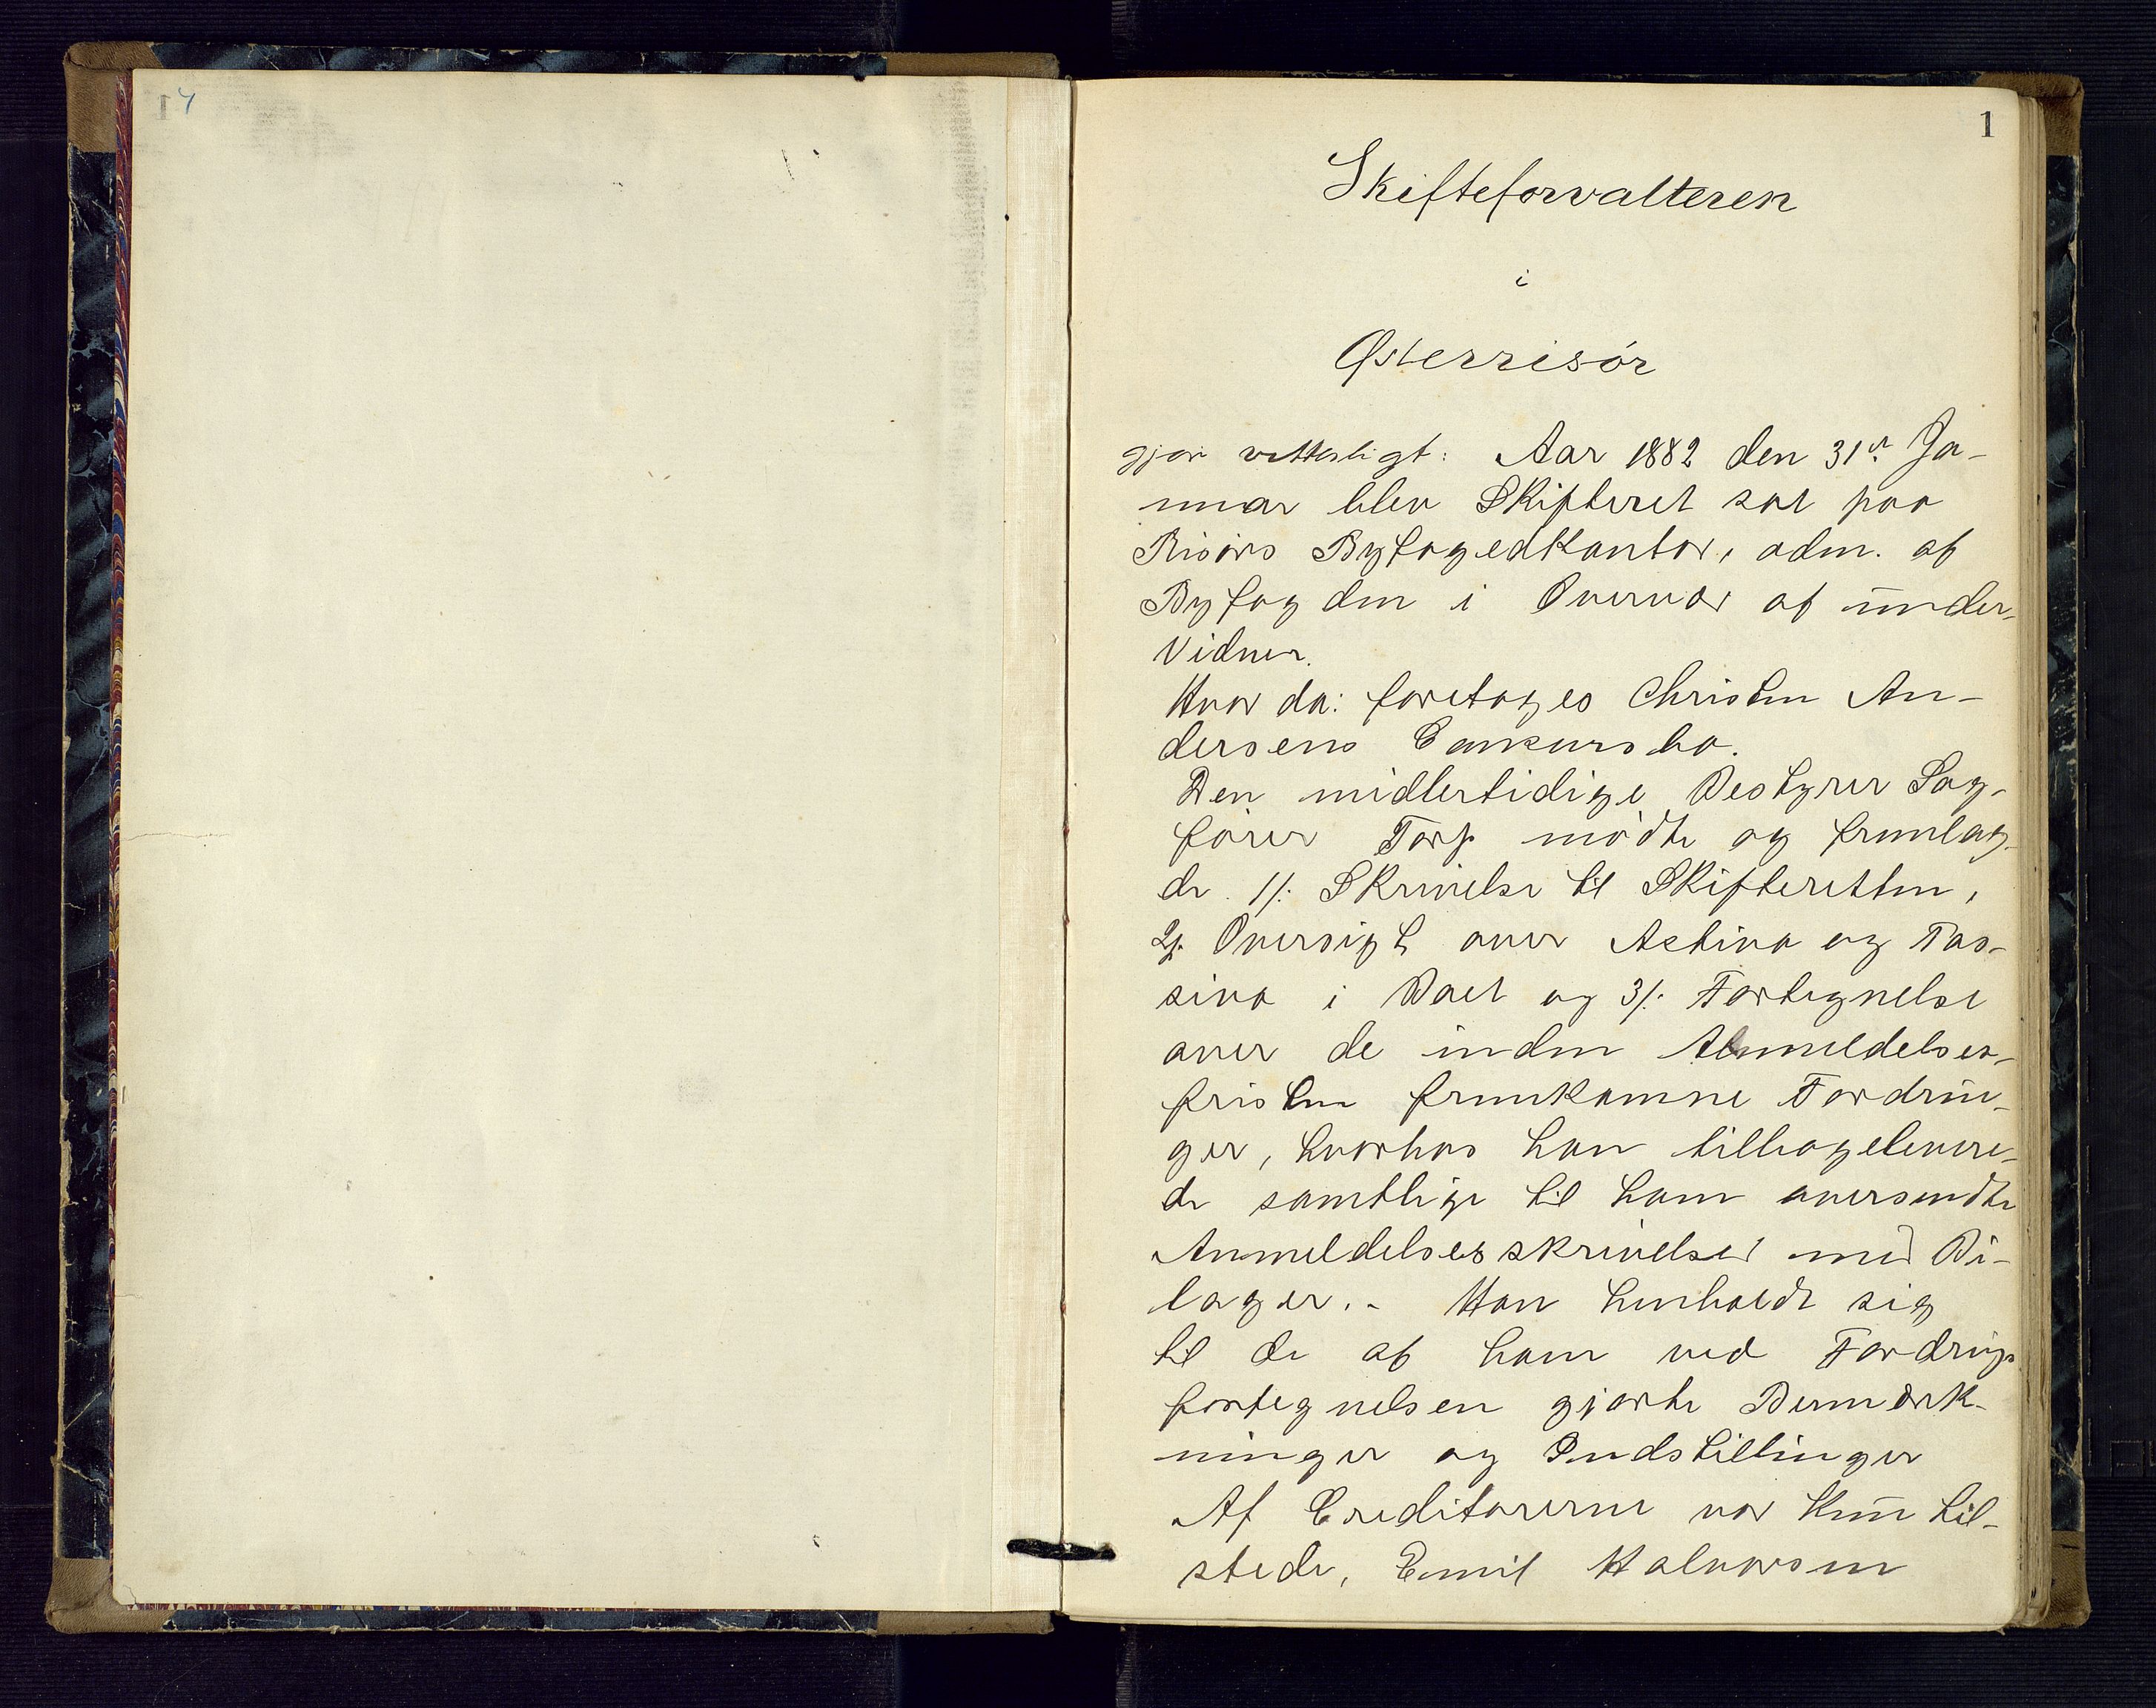 1
Skifteforvalteren
i
Østerrisör
gjör vitterligt: Aar 1882 den 31te Ja-
nuar blev Skifteret sat paa
Risörs Byfogedkontor, adm. af
Byfogden i Overvær af under.
Vidner.
Hvor da: foretoges Christen An-
dersens Concursbo.
Den midlertidige Bestyrer Sag-
förer Torp mödte og fremlag-
de 1/: Skrivelse til Skifteretten,
2/: Oversigt over Activa og Pas-
siva i Boet og 3/: Fortegnelse
over de inden Anmeldelses-
fristen fremkomne Fordrin-
ger, hvorhos han tilbageleve­re-
de samtlige til ham oversendte
Anmeldelsesskrivelser med Bi-
lager. - Han henholdt sig
til de af ham ved Fordrings
fortegnelsen gjorte Bemærk-
ninger og Indstillinger
Af Creditorerne var kun til-
stede, Emil Halvorsen